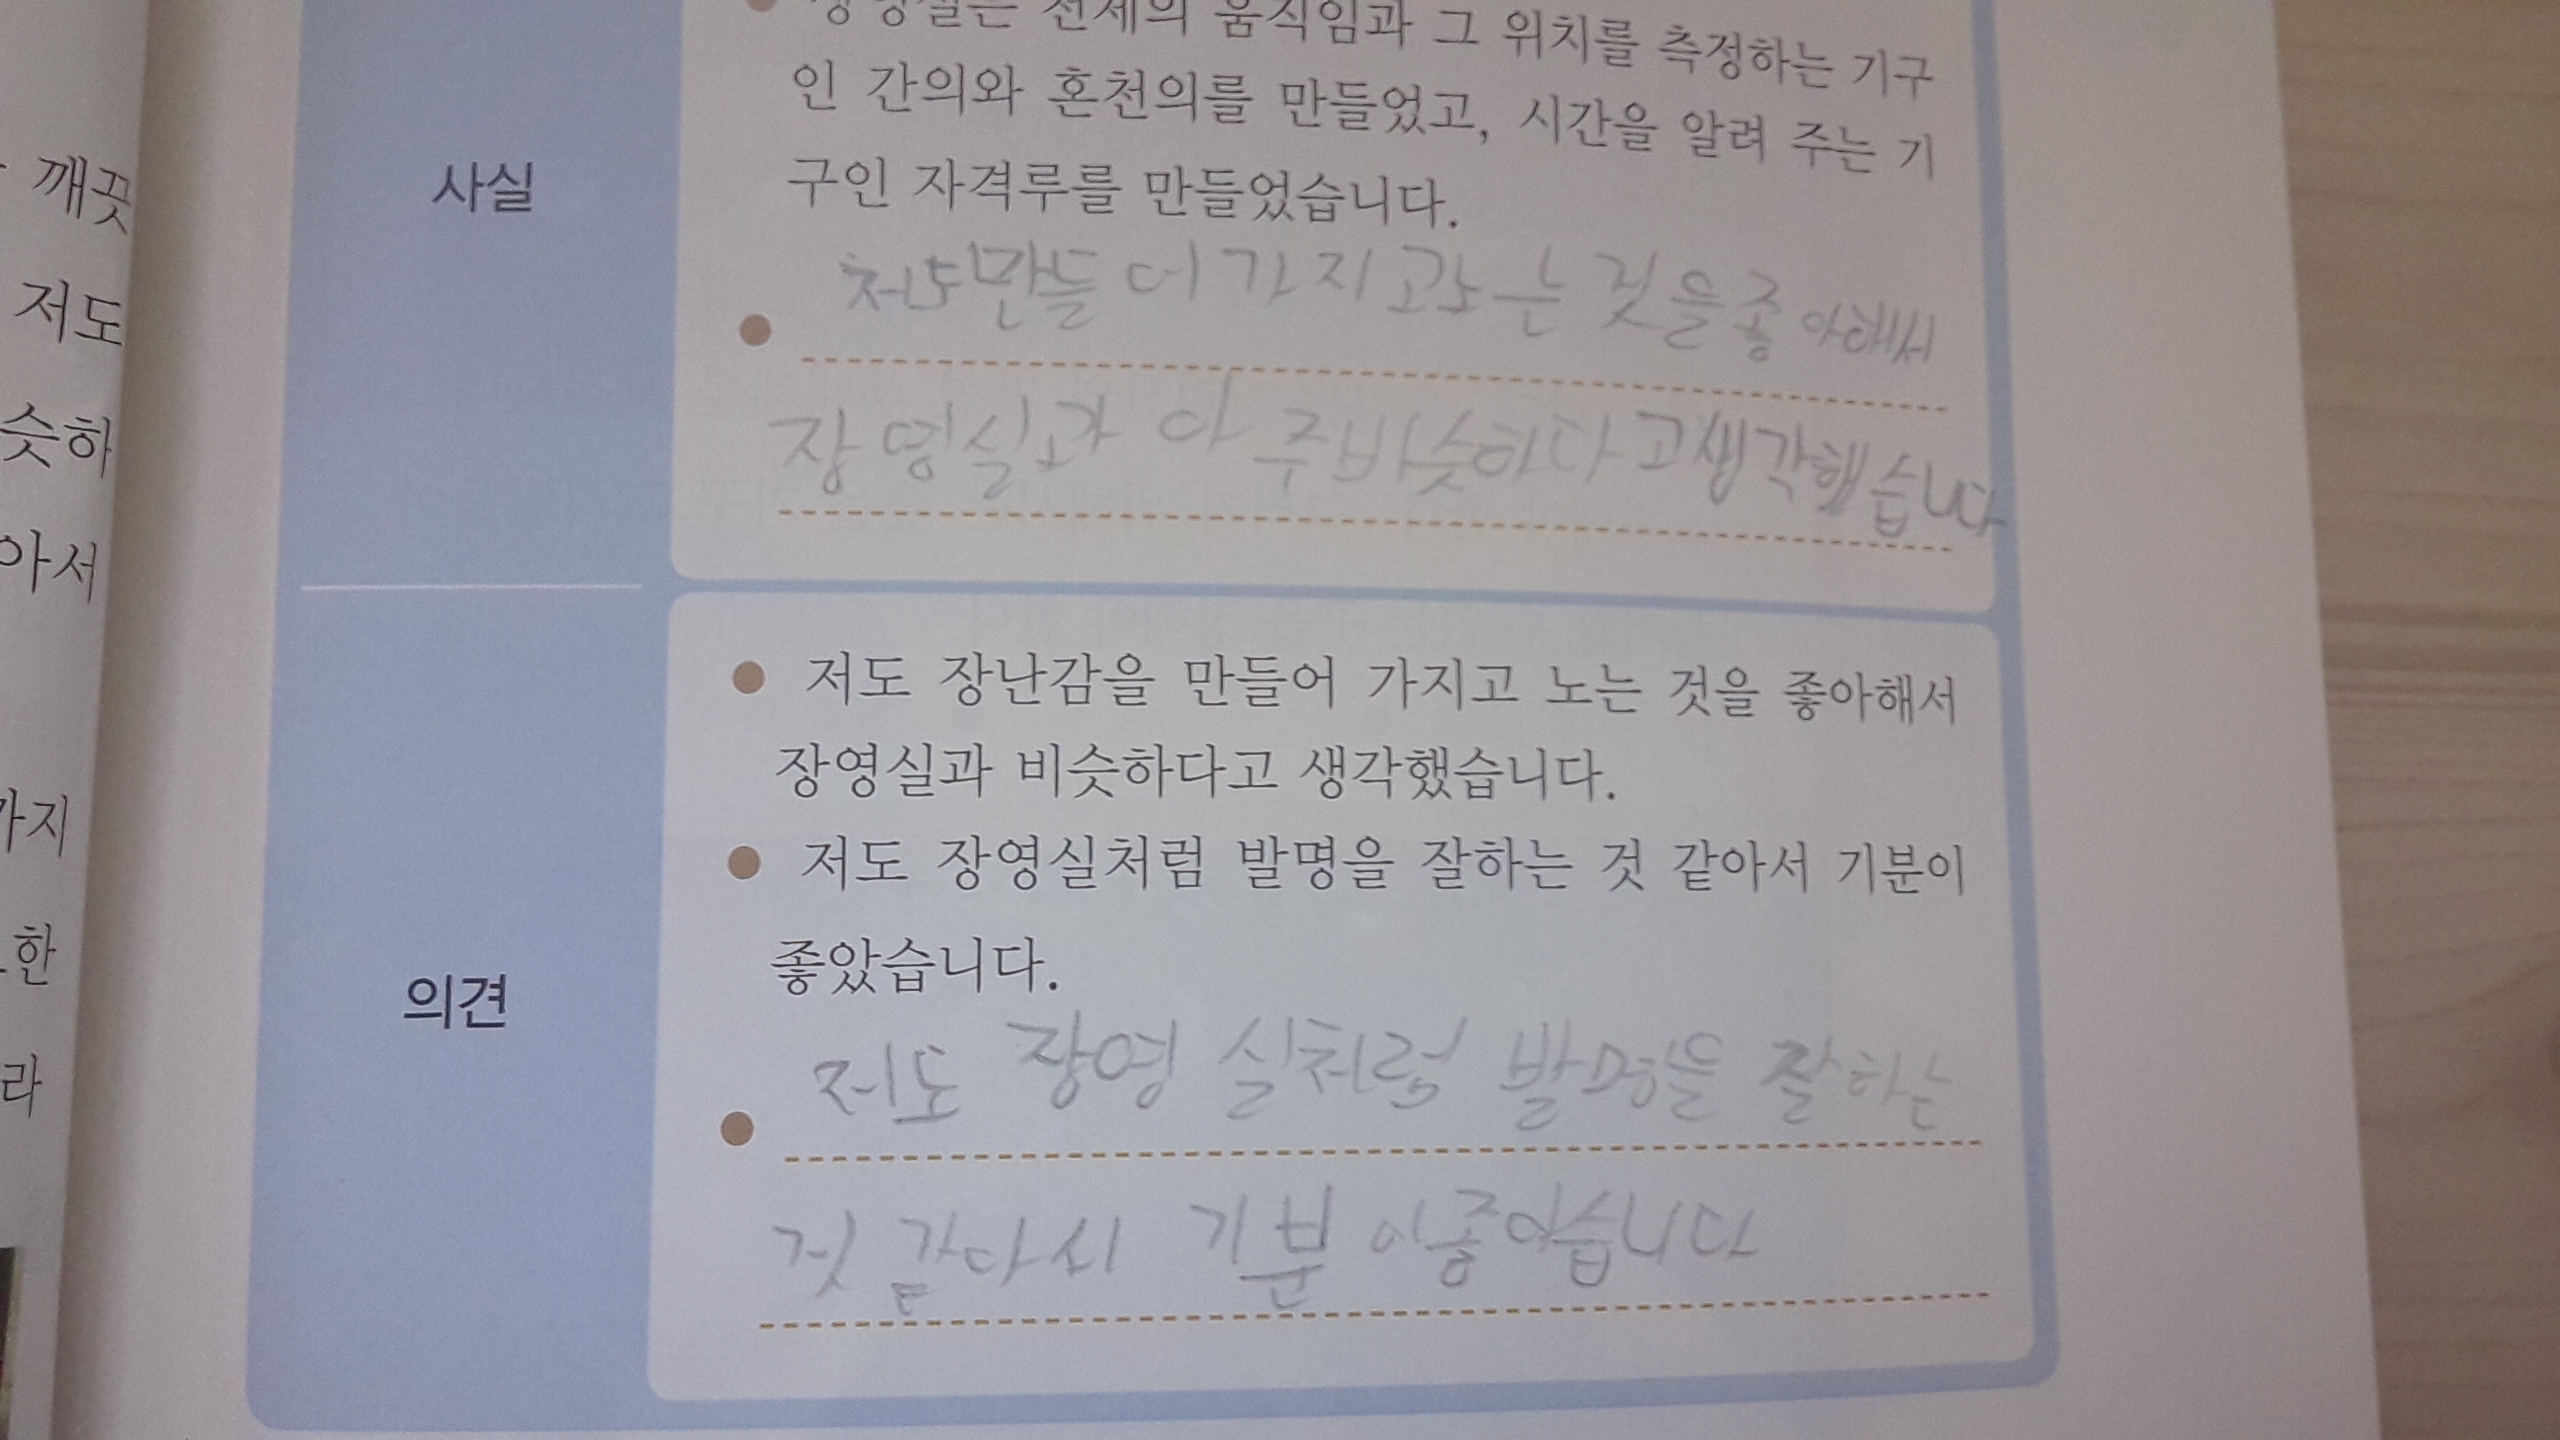 장영실은 천체의 움직임과 그 위치를 측정하는 기구
인 간의와 혼천의를 만들었고, 시간을 알려 주는 기
구인 자격루를 만들었습니다.
사실
만들어가지고 는 것을좋아해써
장영실과 아주비슷하다고생각했습니다
저도 장난감을 만들어 가지고 노는 것을 좋아해서
장영실과 비슷하다고 생각했습니다.
저도 장영실처럼 발명을 잘하는 것 같아서 기분이
좋았습니다.
의견
저도 장영실처럼 발명을 잘하는
것 같아서 기분이좋아습니다
깨끗
저도
슷하
아서
가지
한
라